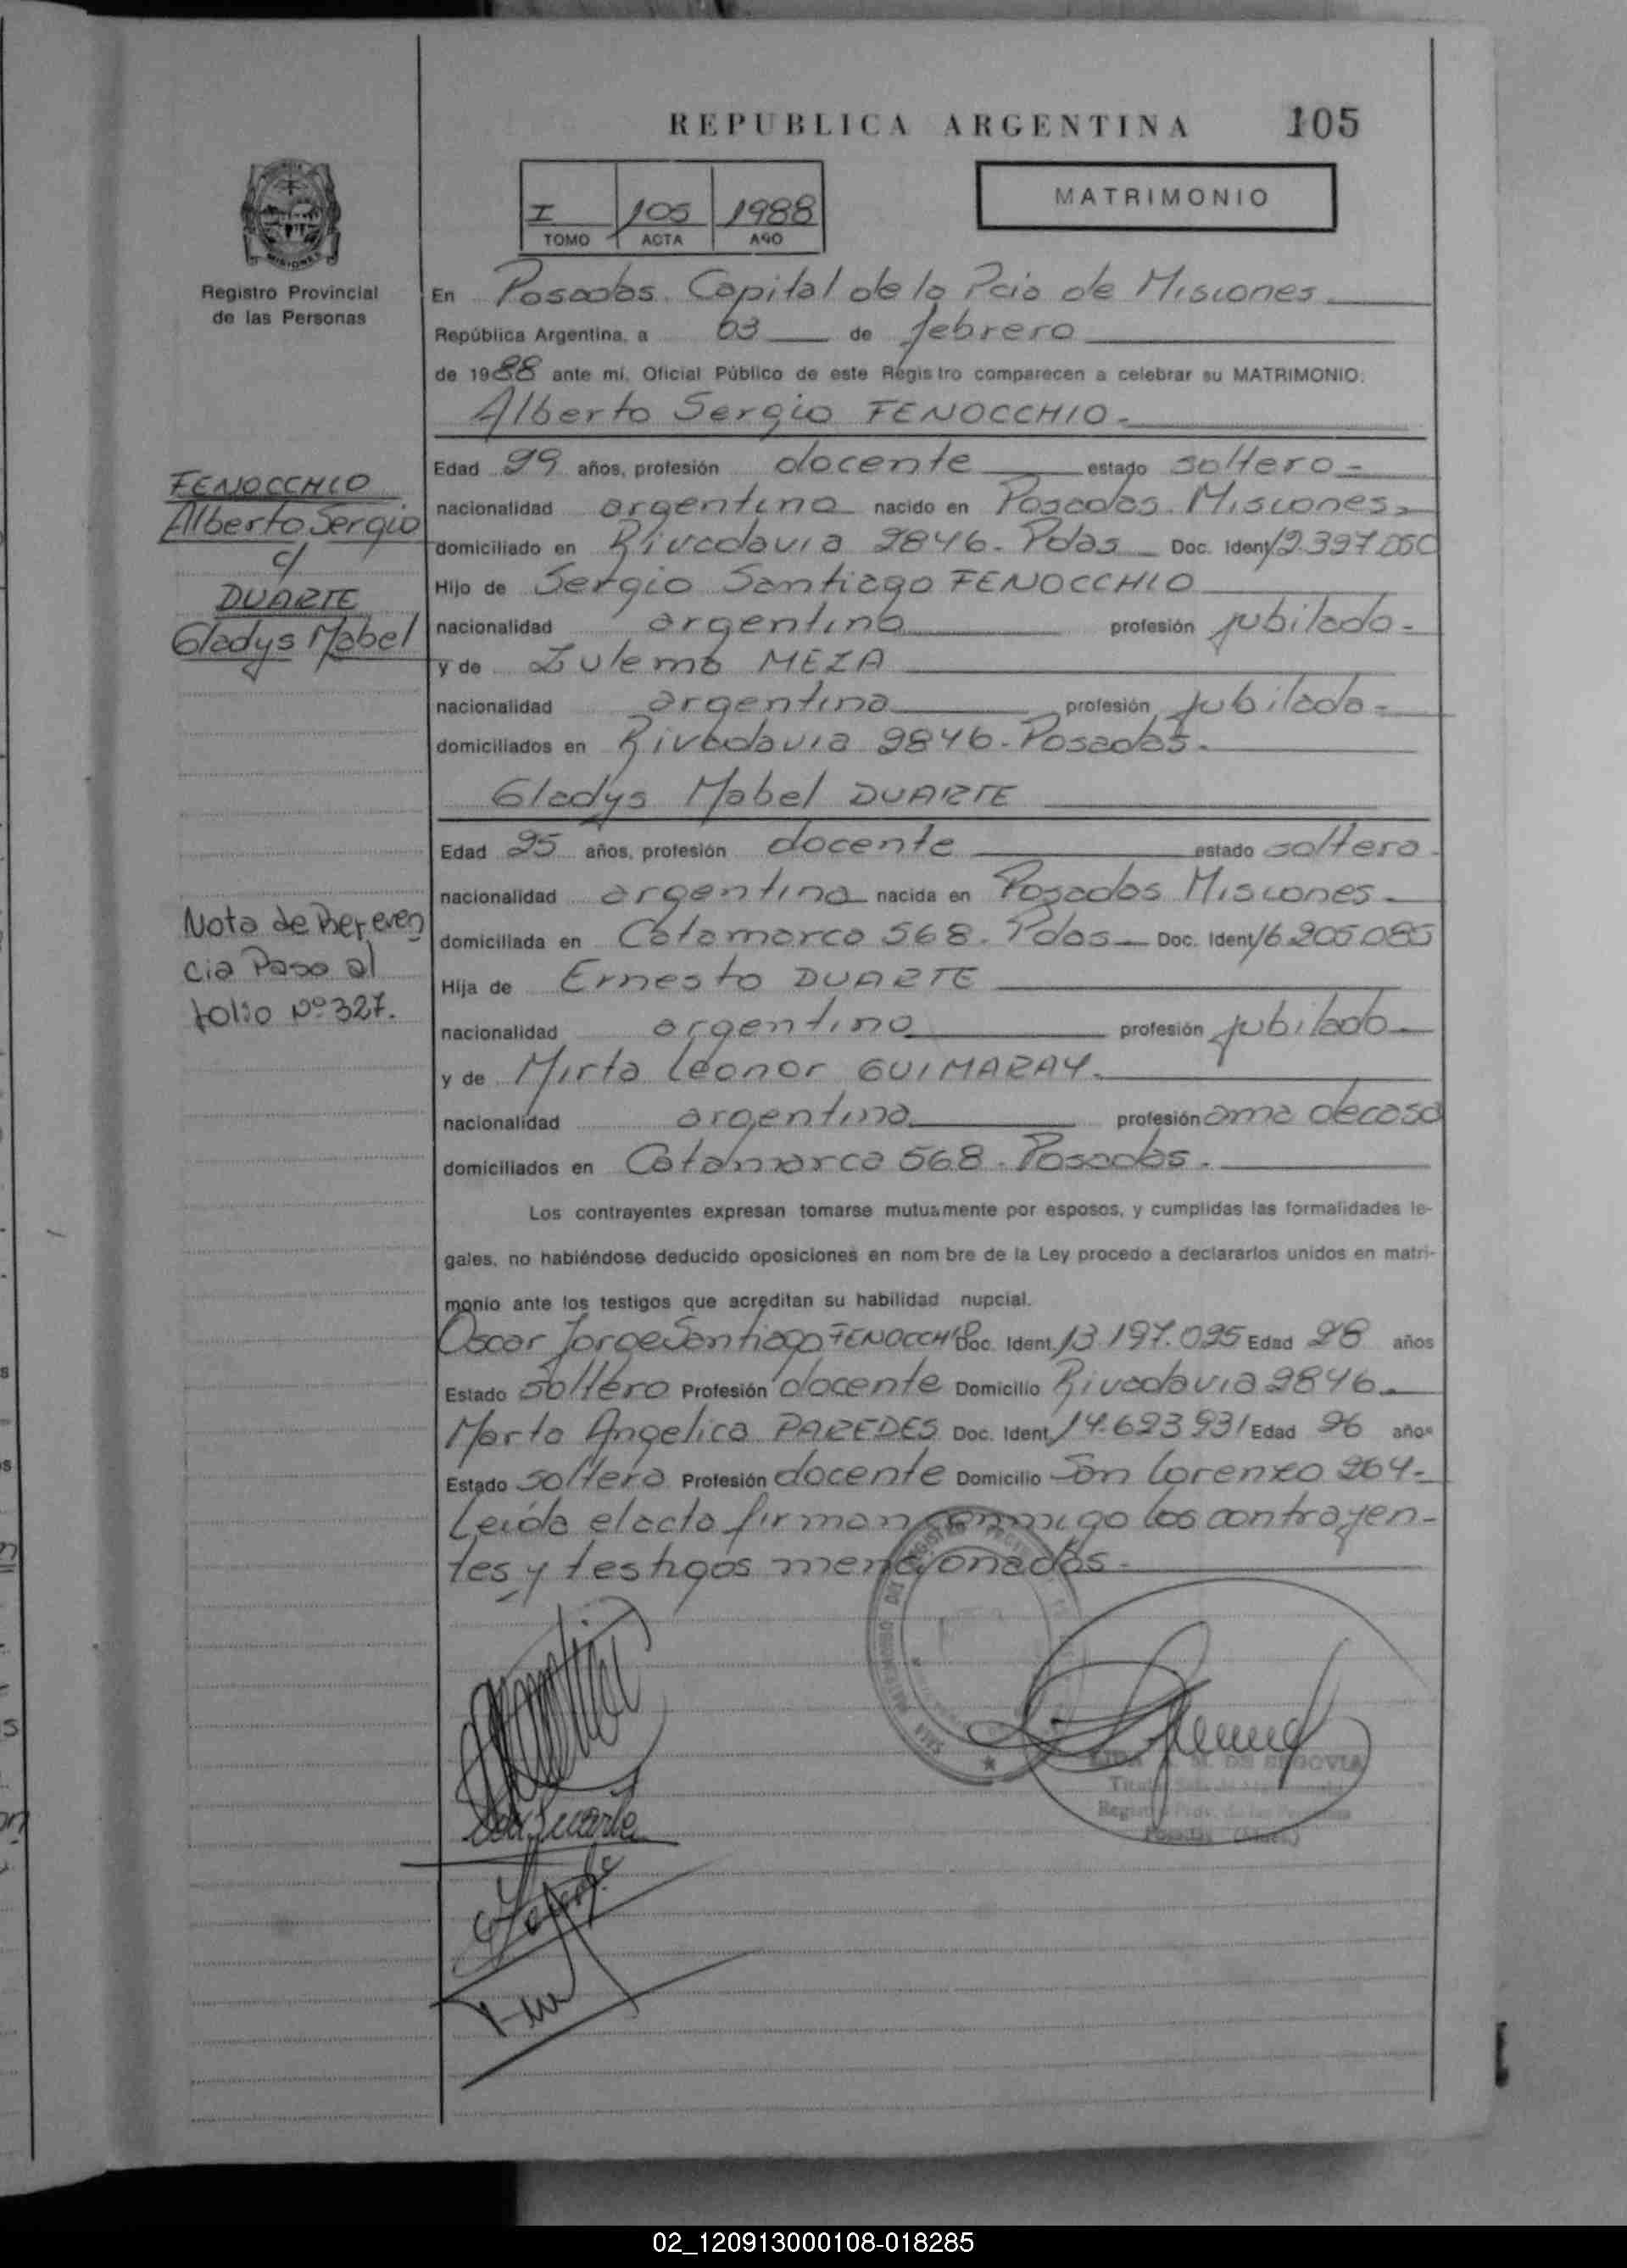 REPUBLICA ARGENTINA 105
I 105 1988
TOMO ACTA AÑO
MATRIMONIO
MISIONES
Registro Provincial
de las Personas
En Posadas. Capital de la Pcia de Misiones
República Argentina, a 03 de febrero
de 1988 ante mí, Oficial Público de este Registro comparecen a celebrar su MATRIMONIO.
Alberto Sergio FENOCCHIO.
FENOCCHIO
Alberto Sergio
c/
DUARTE
Gladys Mabel
Edad 29 años, profesión docente estado soltero-
nacionalidad argentina nacido en Posadas. Misiones.
domiciliado en Rivadavia 2846. Pdas Doc. Ident. 12.397.050
Hijo de Sergio Santiago FENOCCHIO
nacionalidad argentina profesión jubilado-
y de Zulema MEZA
nacionalidad argentina profesión jubilada-
domiciliados en Rivadavia 2846. Posadas.
Gladys Mabel DUARTE
Edad 25 años, profesión docente estado soltera.
nacionalidad argentina nacida en Posadas Misiones.
domiciliada en Catamarca 568. Pdas Doc. Ident. 16.205.085
Hija de Ernesto DUARTE
nacionalidad argentino profesión jubilado
y de Mirta Leonor GUIMARAY.
nacionalidad argentina profesión ama de casa
domiciliados en Catamarca 568. Posadas.
Nota de Bereven
cia Paso al
folio Nº 327.
Los contrayentes expresan tomarse mutuamente por esposos, y cumplidas las formalidades le-
gales, no habiéndose deducido oposiciones en nom bre de la Ley procedo a declararlos unidos en matri-
monio ante los testigos que acreditan su habilidad nupcial.
Oscar Jorge Santiago FENOCCHIO Doc. Ident. 13.197.025 Edad 28 años
Estado soltero Profesión docente Domicilio Rivadavia 2846.
Marta Angelica PAREDES Doc. Ident. 14.623.931 Edad 26 años
Estado soltera Profesión docente Domicilio San Lorenzo 264-
Leída el acta firman conmigo los contrayen-
tes y testigos mencionados.
Duarte
DE SEGOVIA
Posadas
02_120913000108-018285